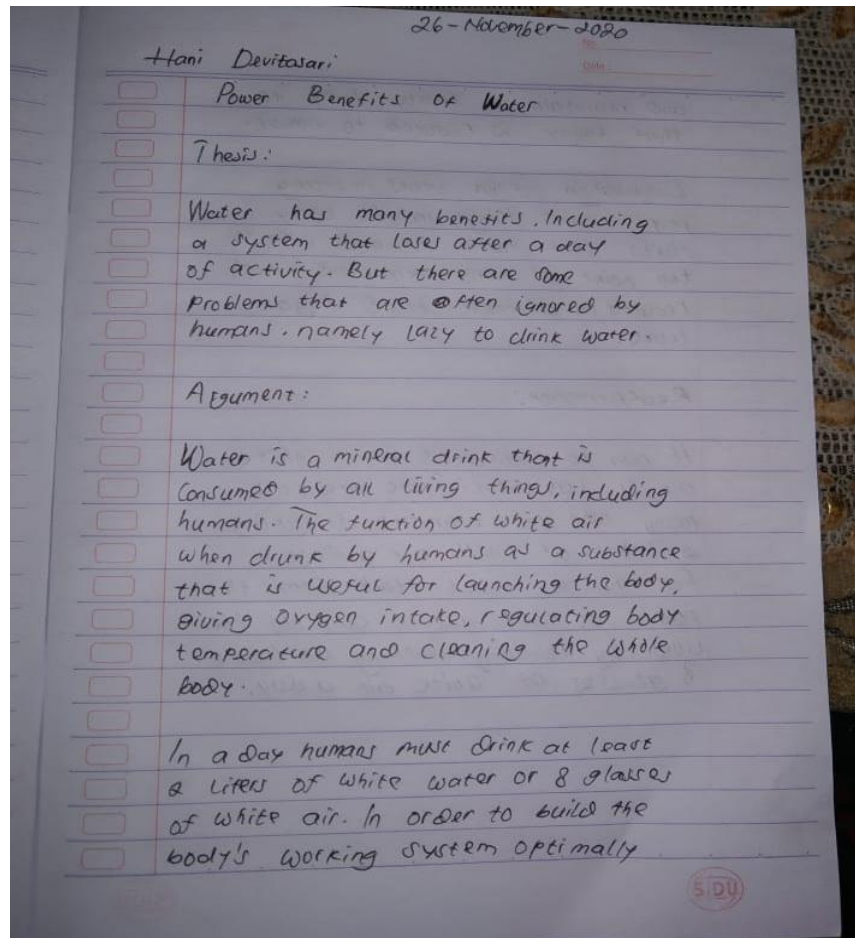 26-November-2020
No.
Date:
Hani Devitasari
Power Benefits of Water
Thesis:
Water has many benefits. Including
a system that loses after a day
of activity. But there are some
problems that are often ignored by
humans. namely lazy to drink water.
Argument:
Water is a mineral drink that is
consumed by all living things, including
humans. The function of white air
when drunk by humans as a substance
that is useful for launching the body,
giving oxygen intake, regulating body
temperature and cleaning the whole
body.
In a day humans must drink at least
2 liters of white water or 8 glasses
of white air. In order to build the
body's working system optimally
SIDU